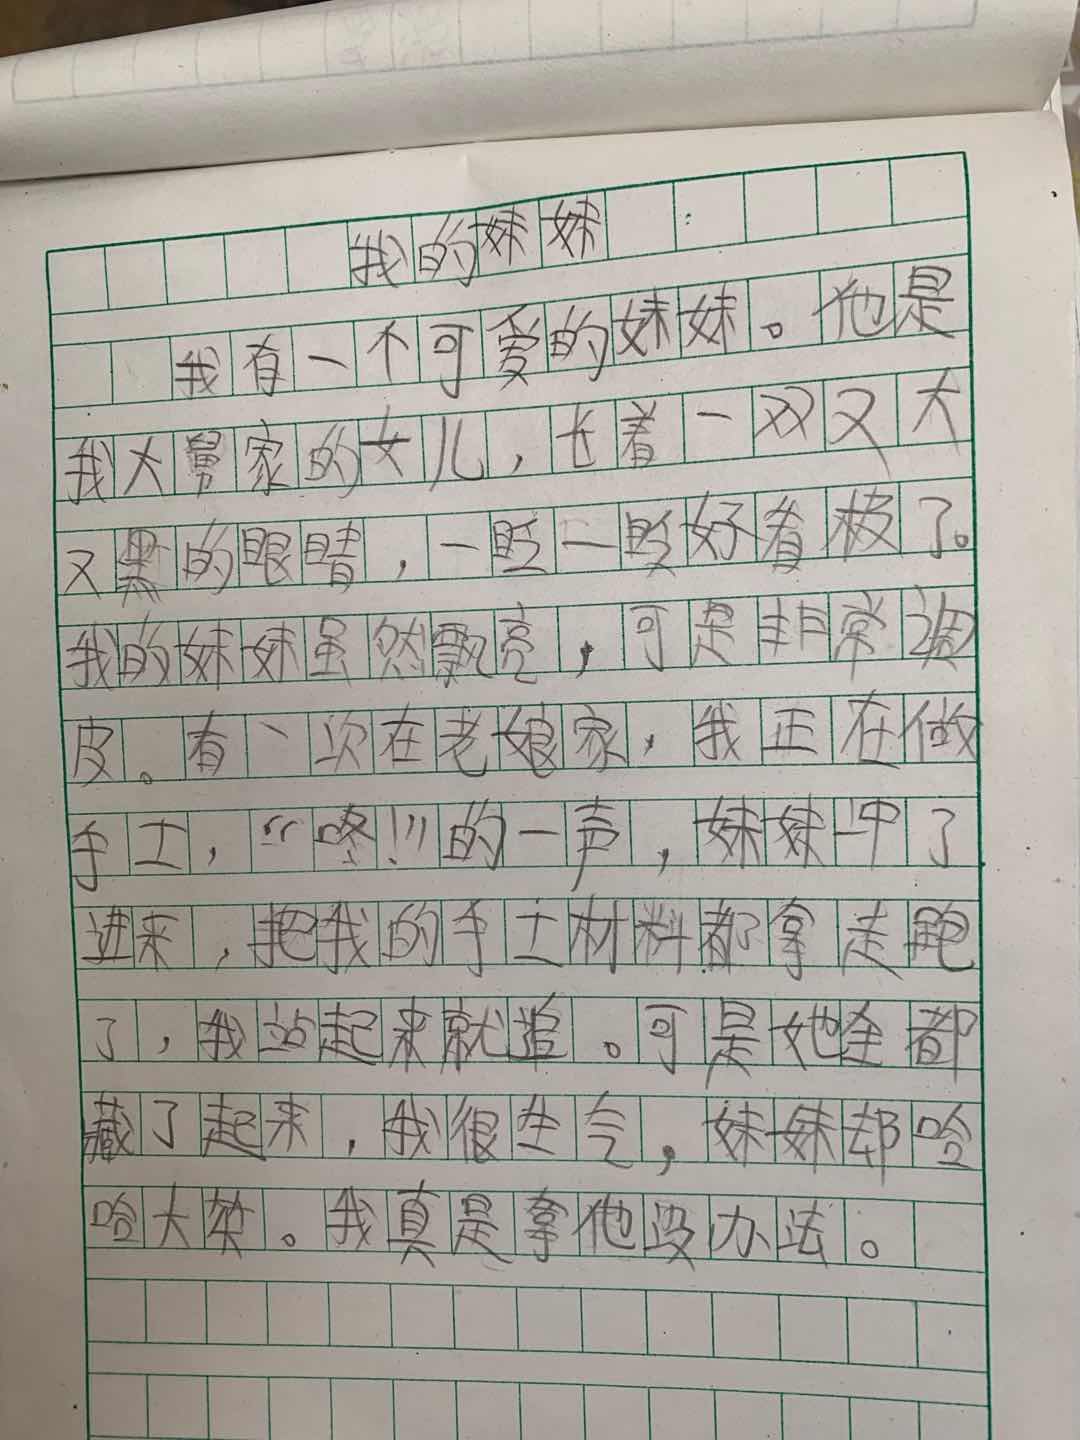 我的妹妹
我有一个可爱的妹妹。他是
我大舅家的女儿，长着一双又大
又黑的眼睛，一眨一眨好看极了。
我的妹妹虽然飘亮，可是非常调
皮。有一次在老娘家，我正在做
手工，“咚!”的一声，妹妹冲了
进来，把我的手工材料都拿走跑
了，我站起来就追。可是她全都
藏了起来，我很生气，妹妹却哈
哈大笑。我真是拿他没办法。